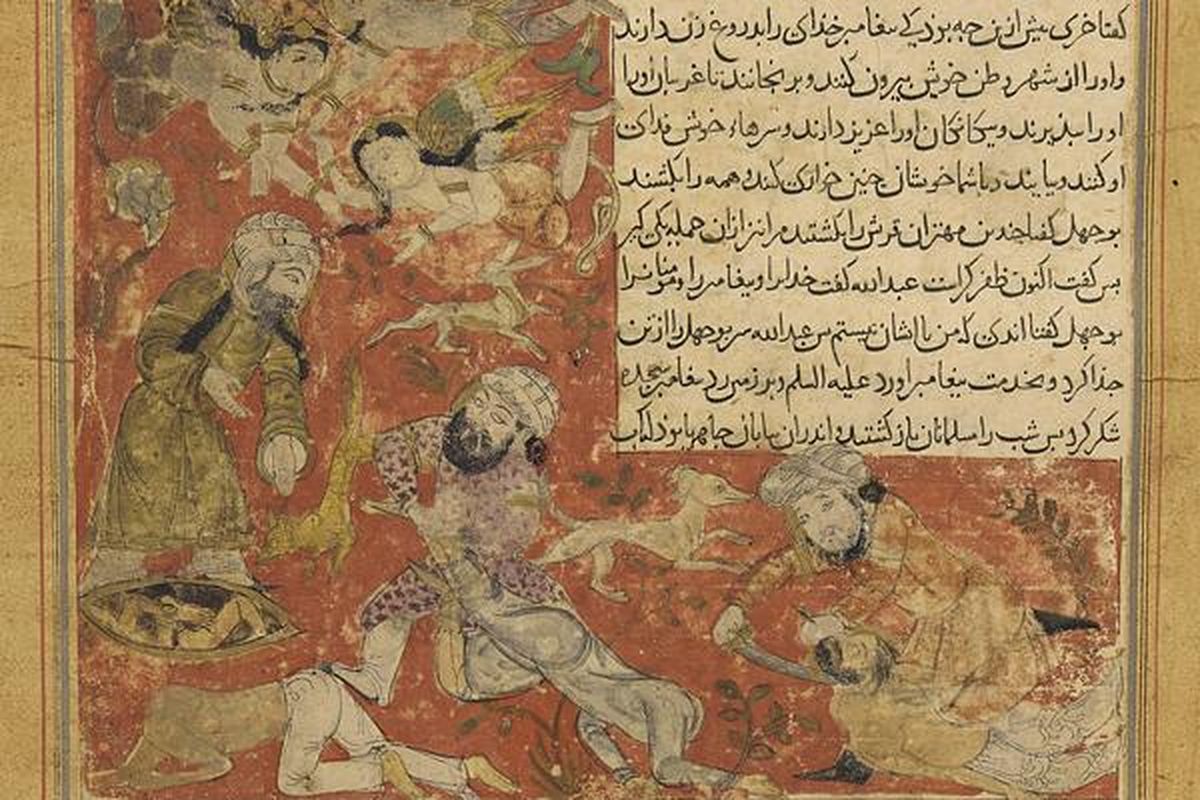 کفتا خری بیش ازین چه بود کی بیغامبر خدای را بدروغ زن دارند
واورا از شهر وطن خویش بیرون کنند و برنجانند تا غریبان اورا
اورا بذیرند و بیکانکان اورا عزیز دارند و سرهاء خویش فدای
او کنند و بیایند و با شما خویشان جنین خواری کنند و همه را بکشند
بوجهل کفتا جندین مهتران قریش را بکشتند مرا نیز ازان جمله یکی کیر
بس کفت اکنون ظفر کراست عبدالله کفت خدایرا و بیغامبر را و مومنانرا
بوجهل کفتا اندی که من با ایشان نیستم بس عبدالله سر بوجهل را از تن
جذا کرد و بخدمت بیغامبر اورد علیه السلم و بر زمین زد بیغامبر سجده
شکر کرد بس شب را مسلمانان باز کشتند و اندران بیابان جاهها بود